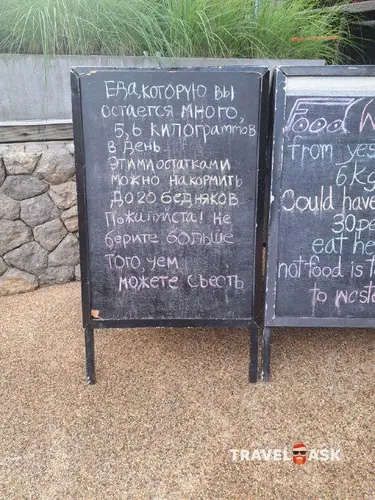 Еда, которую вы
остается много,
5,6 килограммов
в день.
Этими остатками
можно накормить
до 20 бедняков
Пожалуйста! не
берите больше
того, чем
можете съесть
Food
from
6 Kg
Could have
30 pe
eat he
not food is t
to waste
TRAVEL ASK